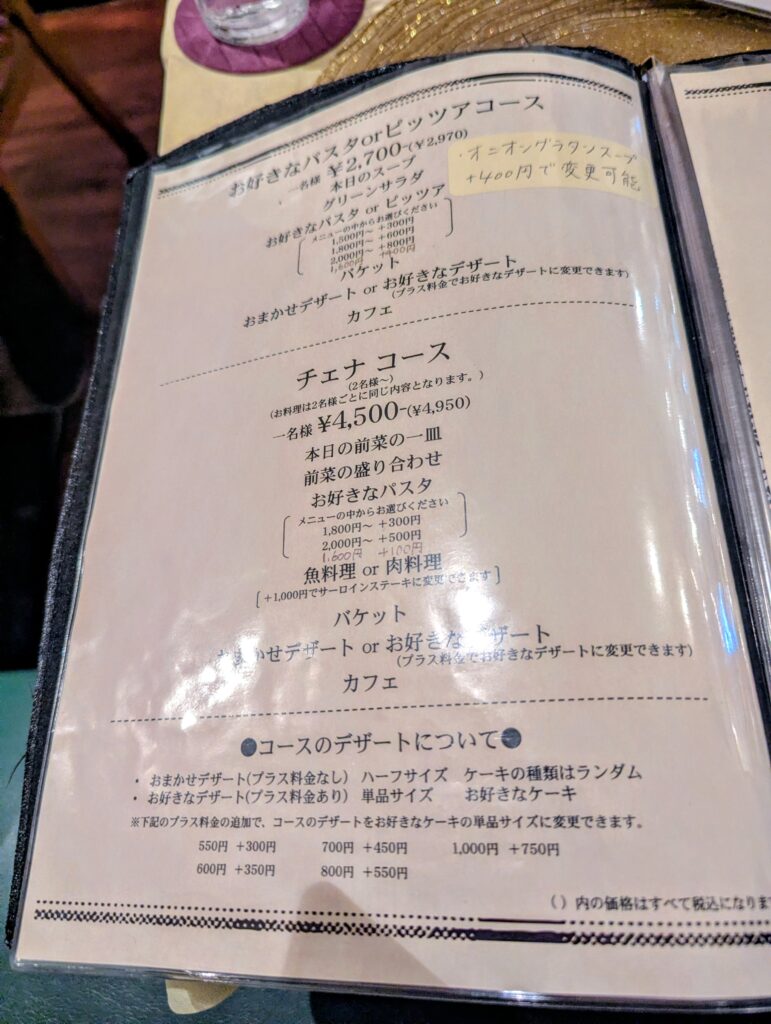 お好きなパスタorピッツアコース
一名様 ¥2,700-(¥2,970)
・オニオングラタンスープ
+400円で変更可能
本日のスープ
グリーンサラダ
お好きなパスタ or ピッツア
メニューの中からお選びください
1,500円〜 +300円
1,800円〜 +600円
2,000円〜 +800円
1,600円 +400円
バケット
おまかせデザート or お好きなデザート
(プラス料金でお好きなデザートに変更できます)
カフェ
チェナ コース
(2名様〜)
(お料理は2名様ごとに同じ内容となります。)
一名様 ¥4,500-(¥4,950)
本日の前菜の一皿
前菜の盛り合わせ
お好きなパスタ
メニューの中からお選びください
1,800円〜 +300円
2,000円〜 +500円
1,600円 +100円
魚料理 or 肉料理
[+1,000円でサーロインステーキに変更できます]
バケット
おまかせデザート or お好きなデザート
(プラス料金でお好きなデザートに変更できます)
カフェ
●コースのデザートについて●
・ おまかせデザート(プラス料金なし) ハーフサイズ ケーキの種類はランダム
・ お好きなデザート(プラス料金あり) 単品サイズ お好きなケーキ
※下記のプラス料金の追加で、コースのデザートをお好きなケーキの単品サイズに変更できます。
550円 +300円 700円 +450円 1,000円 +750円
600円 +350円 800円 +550円
( ) 内の価格はすべて税込になりま